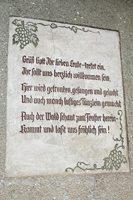 Grüß Gott Ihr lieben Leute - tretet ein,
Ihr sollt uns herzlich willkommen sein.
Hier wird getrunken, gesungen und gelacht
Und auch manch lustiges Tänzlein gemacht
Auch der Wald schaut zum Fenster herein
Kommt und laßt uns fröhlich sein!